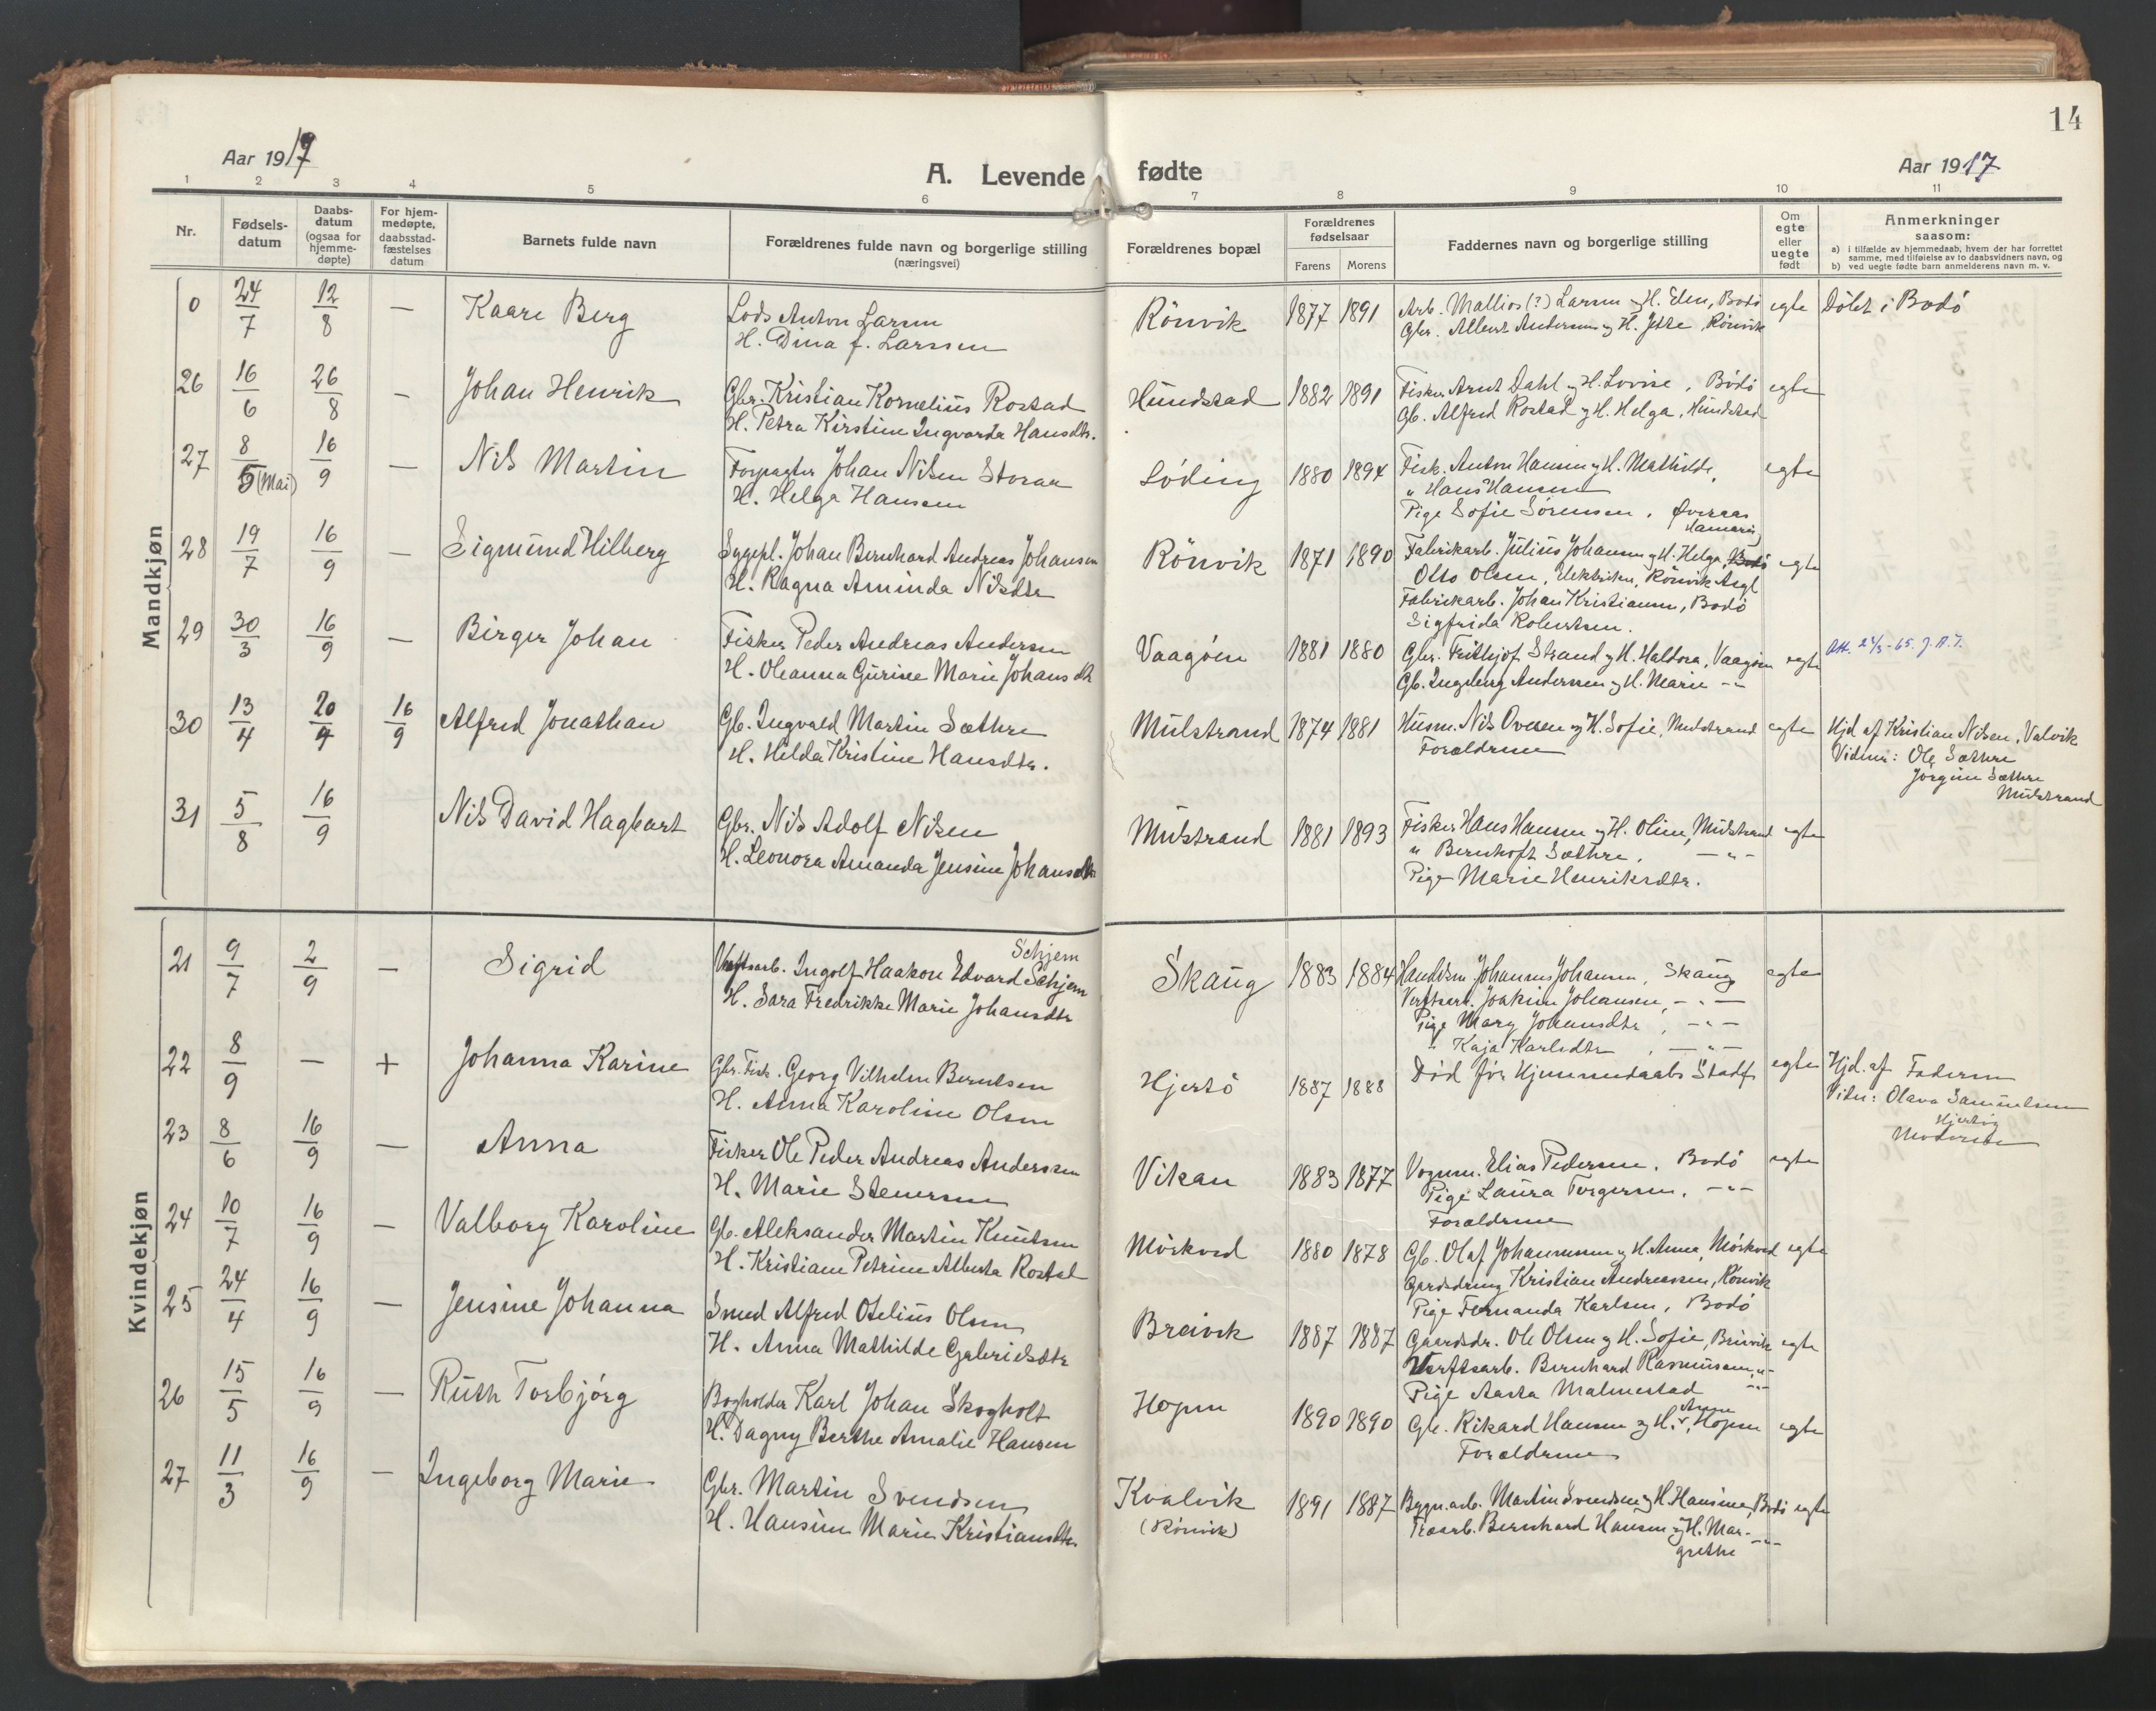 14
Aar 1917
A. Levende fødte
Aar 1917
1 2 3 4 5 6 7 8 9 10 11
Nr.
Fødsels-
datum
Daabs-
datum
(ogsaa for
hjemme-
døpte)
For hjem-
medøpte,
daabsstad-
fæstelses
datum
Barnets fulde navn
Forældrenes fulde navn og borgerlige stilling
(næringsvei)
Forældrenes bopæl
Forældrenes
fødselsaar
Farens Morens
Faddernes navn og borgerlige stilling
Om
egte
eller
uegte
født
Anmerkninger
saasom:
a) i tilfælde av hjemmedaab, hvem der har forrettet
samme, med tilføielse av to daabsvidners navn, og
b) ved uegte fødte barn anmelderens navn m. v.
Mandkjøn
0 24/7 12/8 — Kaare Berg
Lods Anton Larsen
H. Dina f. Larssen
Rönvik 1877 1891
Arb. Mallios (?) Larsen og H. Elen, Bodö
Gbr. Albert Andersen og H. Jette, Rönvik
egte Döbt i Bodö
26 16/6 26/8 — Johan Henrik
Gbr. Kristian Kornelius Rostad
H. Petra Kirstine Ingvarda Hansdtr.
Hundstad 1882 1891
Fisker Arnt Dahl og H. Lovise, Bodö
Gb. Alfred Rostad og H. Helga, Hundstad
egte
27 8/5 (Mai) 16/9 — Nils Martin
Forpagter Johan Nilsen Storaa
H. Helga Hansen
Löding 1880 1894
Fisk. Anton Hansen og H. Mathilde,
" Hans Hansen
Pige Sofie Sörensen, Överaas
Hamaröy
egte
28 19/7 16/9 — Sigmund Hilberg
Sygepl. Johan Bernhard Andreas Johansen
H. Ragna Aminda Nilsdtr
Rönvik 1871 1890
Fabrikarb. Julius Johansen og H. Helga, Bodö
Otto Olsen, Elektriker, Rönvik Asyl
Fabrikarb. Johan Kristiansen, Bodö
Sigfrida Robertsen.
egte
29 30/3 16/9 — Birger Johan
Fisker Peder Andreas Andersen
H. Oleanna Gurine Marie Johansdtr
Vaagöen 1881 1880
Gbr. Frithjof Strand og H. Haldora, Vaagöen
Gb. Ingeberg Andersen og H. Marie -"-
egte Att. 24/5-65. J.A.T.
30 13/4 20/4 16/9 Alfred Jonathan
Gb. Ingvald Martin Sæthre
H. Hilda Kristine Hansdtr.
Mulstrand 1874 1881
Husm. Nils Ovesen og H. Sofie, Mulstrand
Forældrene
egte Hjd af Kristian Nilsen, Valvik
Vidner: Ole Sæthre
Jörgine Sæthre
Mulstrand
31 5/8 16/9 Nils David Hagbart
Gbr. Nils Adolf Nilsen
H. Leonora Amanda Jensine Johansdtr
Mulstrand 1881 1893
Fisker Hans Hansen og H. Oline, Mulstrand
" Bernhoft Sæthre, -"-
Pige Marie Henriksdtr.
egte
Kvindekjøn
21 9/7 2/9 — Sigrid
Schjem
Verftsarb. Ingolf Haakon Edvard Schjem
H. Sara Fredrikke Marie Johansdtr
Skaug 1883 1884
Handelsm Johannes Johansen, Skaug
Verftsarb. Joakim Johansen, -"-
Pige Mary Johansdtr, -"-
" Kaja Karlsdtr, -"-
egte
22 8/9 — + Johanna Karine
Gbr. Fisk. Georg Vilhelm Berntsen
H. Anna Karoline Olsen
Hjertö 1887 1888
Död för Hjemmedaabs Stadf.
egte Hjd. af Faderen
Vidn: Olava Samuelsen
Hjertöy
Moderen
23 8/6 16/9 — Anna
Fisker Ole Peder Andreas Anderssen
H. Marie Stenersen
Vikan 1883 1877
Vognm. Elias Pedersen, Bodö
Pige Laura Torgersen, -"-
Forældrene
egte
24 10/7 16/9 — Valborg Karoline
Gb. Aleksander Martin Knutsen
H. Kristiane Petrine Alberta Rostad
Mörkved 1880 1878
Gb. Olaf Johannessen og H. Anna, Mörkved
Gardsdreng Kristian Andreassen, Rönvik
Pige Fernanda Karlsen, Bodö
egte
25 24/4 16/9 — Jensine Johanna
Smed Alfred Otelius Olsen
H. Anna Mathilde Gabrielsdtr
Breivik 1887 1887
Gaardsdr. Ole Olsen og H. Sofie, Breivik
Verftsarb. Bernhard Rasmussen, -"-
Pige Aasta Malmestad -"-
egte
26 15/5 16/9 — Ruth Torbjörg
Bogholder Karl Johan Skogholt
H. Dagny Berthe Amalie Hansen
Hopen 1890 1890
Anna
Gb. Rikard Hansen og H. v, Hopen
Forældrene
egte
27 11/3 16/9 — Ingeborg Marie
Gbr. Martin Svendsen
H. Hansine Marie Kristiansdtr
Kvalvik
(Rönvik)
1891 1887
Bygn.arb. Martin Svendsen og H. Hansine, Bodö
Træarb. Bernhard Hansen og H. Mar-
grethe -"-
egte